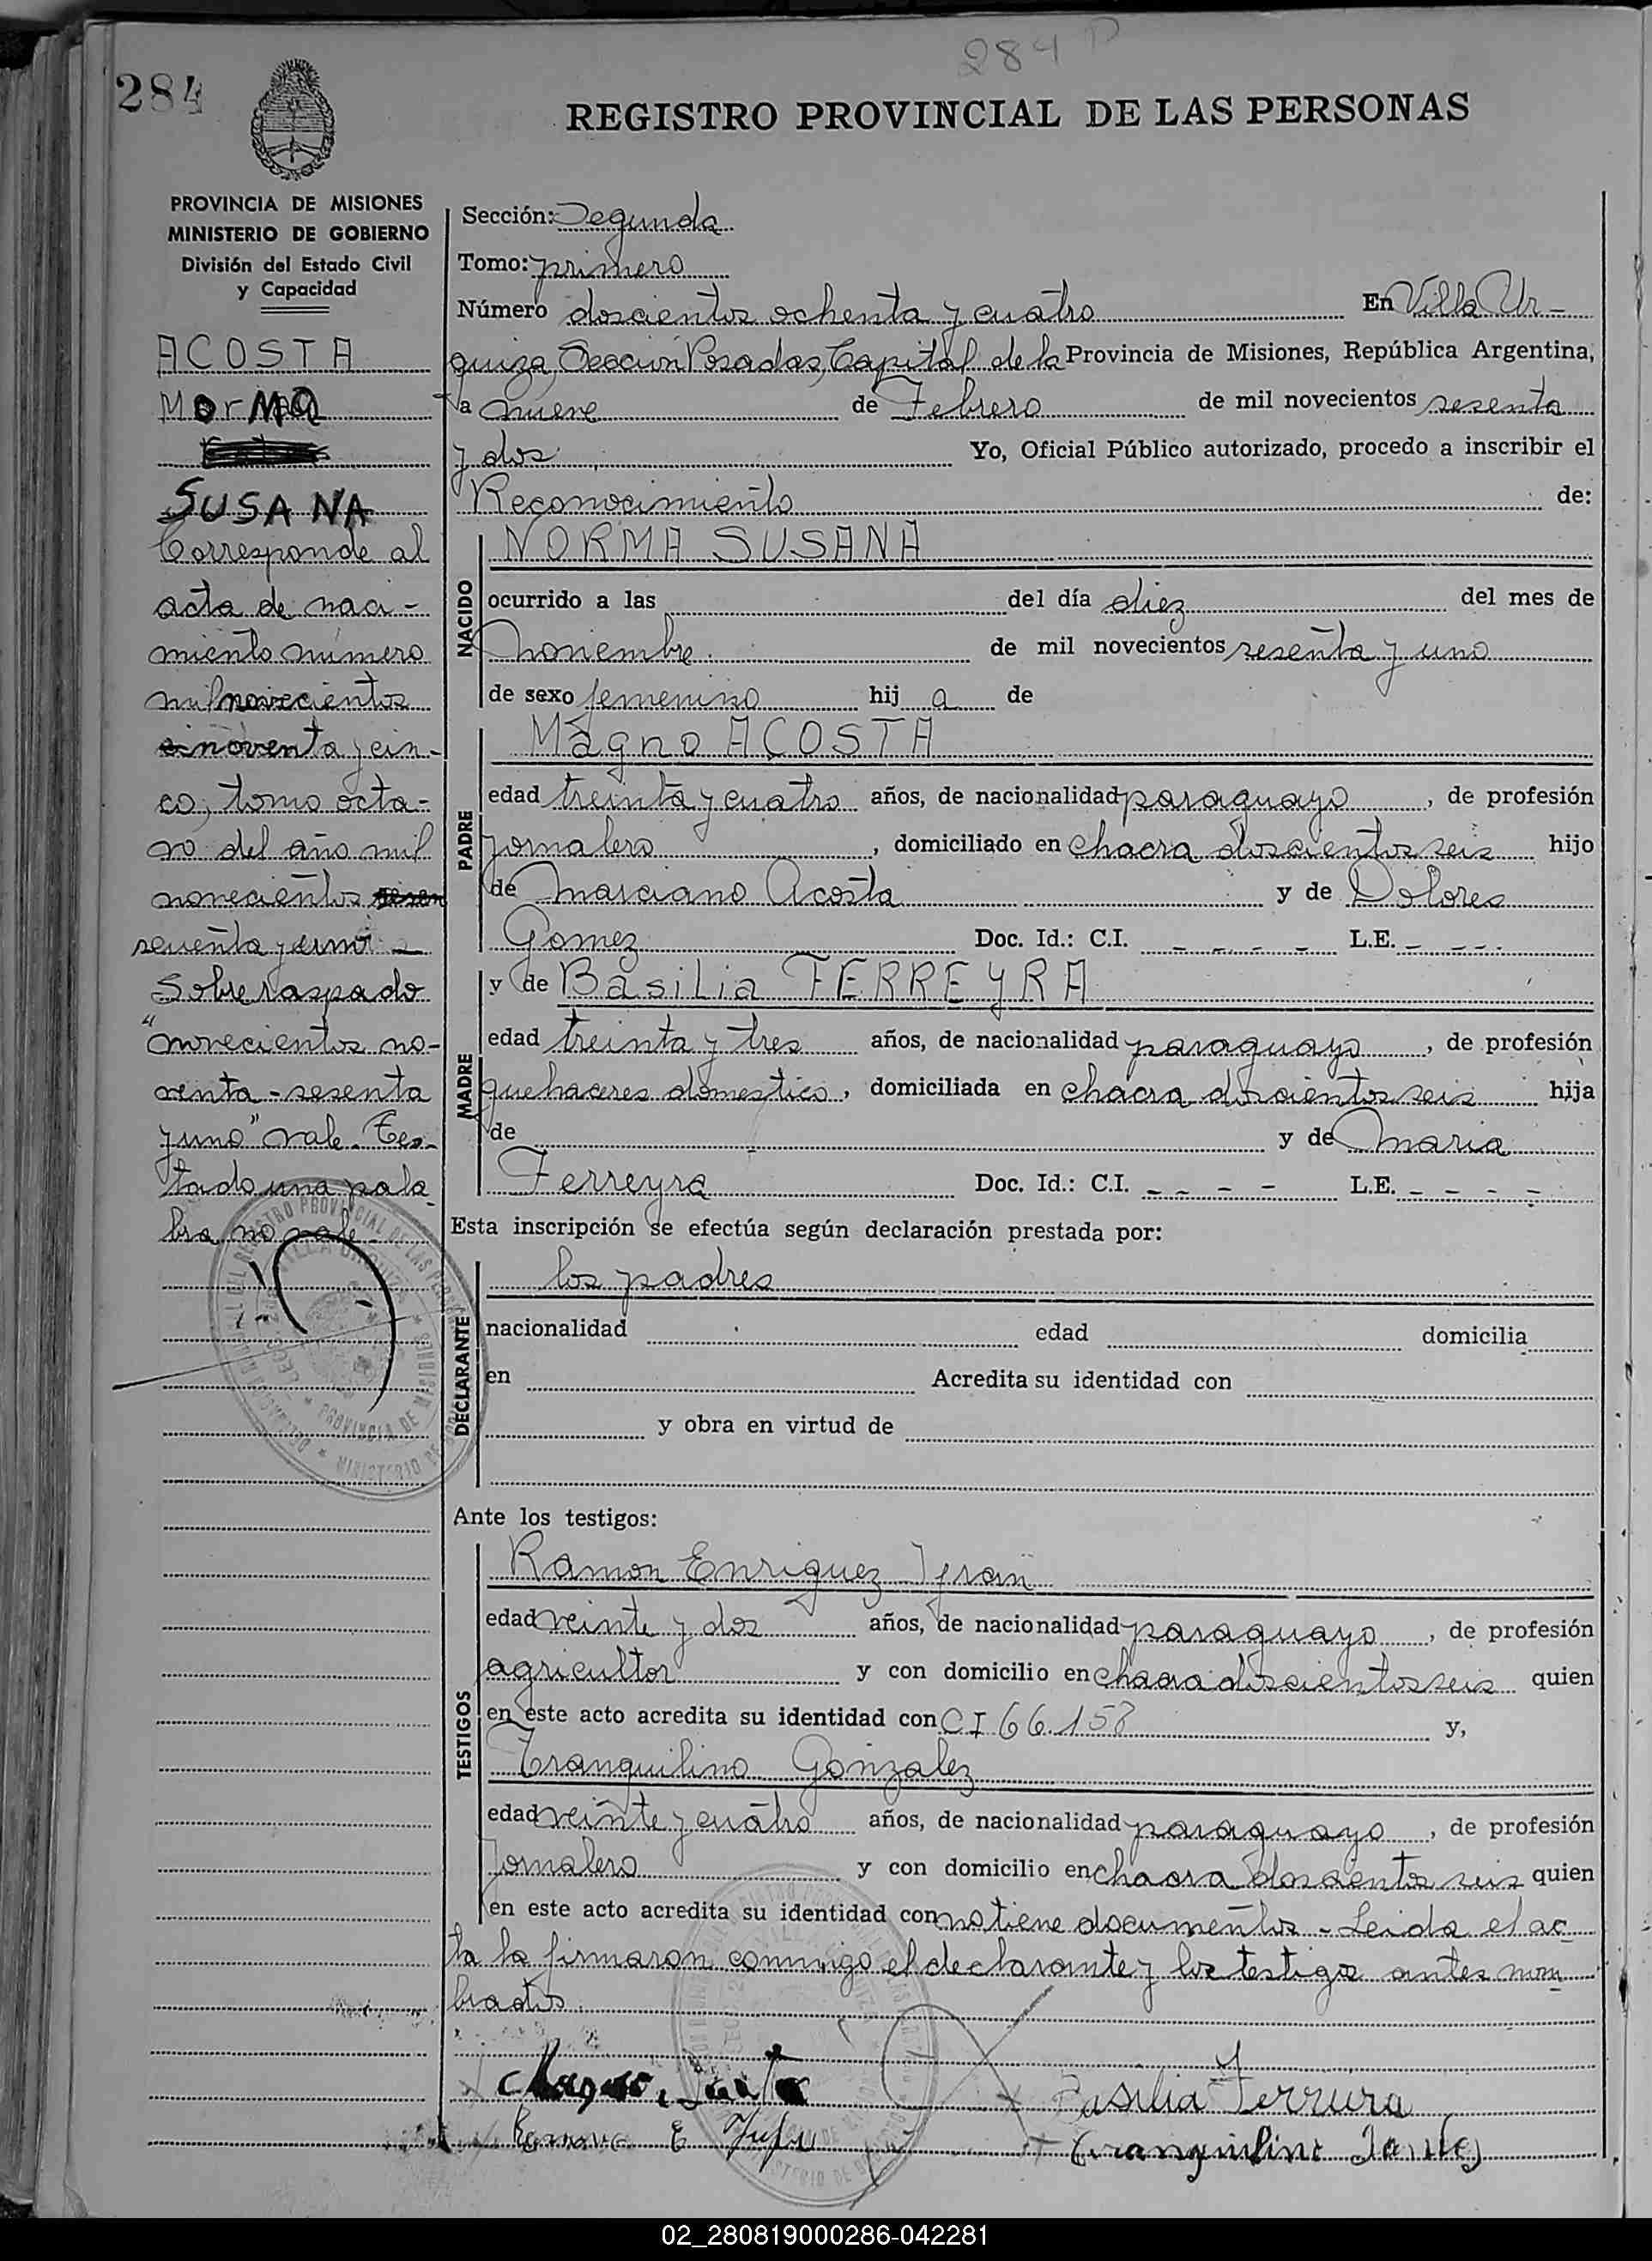 284 P
284
REGISTRO PROVINCIAL DE LAS PERSONAS
PROVINCIA DE MISIONES
MINISTERIO DE GOBIERNO
División del Estado Civil
y Capacidad
ACOSTA
NORMA
SUSANA
Corresponde al
acta de naci-
miento número
mil novecientos
noventa y cin-
co, tomo octa-
vo del año mil
novecientos
sesenta y uno -
Sobreraspado
"novecientos no-
venta - sesenta
y uno" vale. Tes-
tado una pala-
bra no vale.
Sección: Segunda
Tomo: primero
Número doscientos ochenta y cuatro En Villa Ur-
quiza, Sección Posadas, Capital de la Provincia de Misiones, República Argentina,
a nueve de Febrero de mil novecientos sesenta
y dos Yo, Oficial Público autorizado, procedo a inscribir el
Reconocimiento de:
NACIDO
NORMA SUSANA
ocurrido a las del día diez del mes de
noviembre de mil novecientos sesenta y uno
de sexo femenino hij a de
PADRE
Magno ACOSTA
edad treinta y cuatro años, de nacionalidad paraguayo, de profesión
jornalero, domiciliado en chacra doscientos seis hijo
de Marciano Acosta y de Dolores
Gomez Doc. Id.: C.I. - - - - L.E. - - - -
MADRE
y de Basilia FERREYRA
edad treinta y tres años, de nacionalidad paraguaya, de profesión
quehaceres domestico, domiciliada en chacra doscientos seis hija
de y de Maria
Ferreyra Doc. Id.: C.I. - - - - L.E. - - - -
Esta inscripción se efectúa según declaración prestada por:
DECLARANTE
los padres
nacionalidad edad domicilia
en Acredita su identidad con
y obra en virtud de
Ante los testigos:
TESTIGOS
Ramon Enriquez
edad veinte y dos años, de nacionalidad paraguayo, de profesión
agricultor y con domicilio en chacra doscientos seis quien
en este acto acredita su identidad con CI 66.158 y,
Tranquilino Gonzalez
edad veinte y cuatro años, de nacionalidad paraguayo, de profesión
Jornalero y con domicilio en chacra doscientos seis quien
en este acto acredita su identidad con no tiene documentos - Leida el ac
ta la firmaron conmigo el declarante y los testigos antes nom
brados.
Basilia Ferrura
02_280819000286-042281